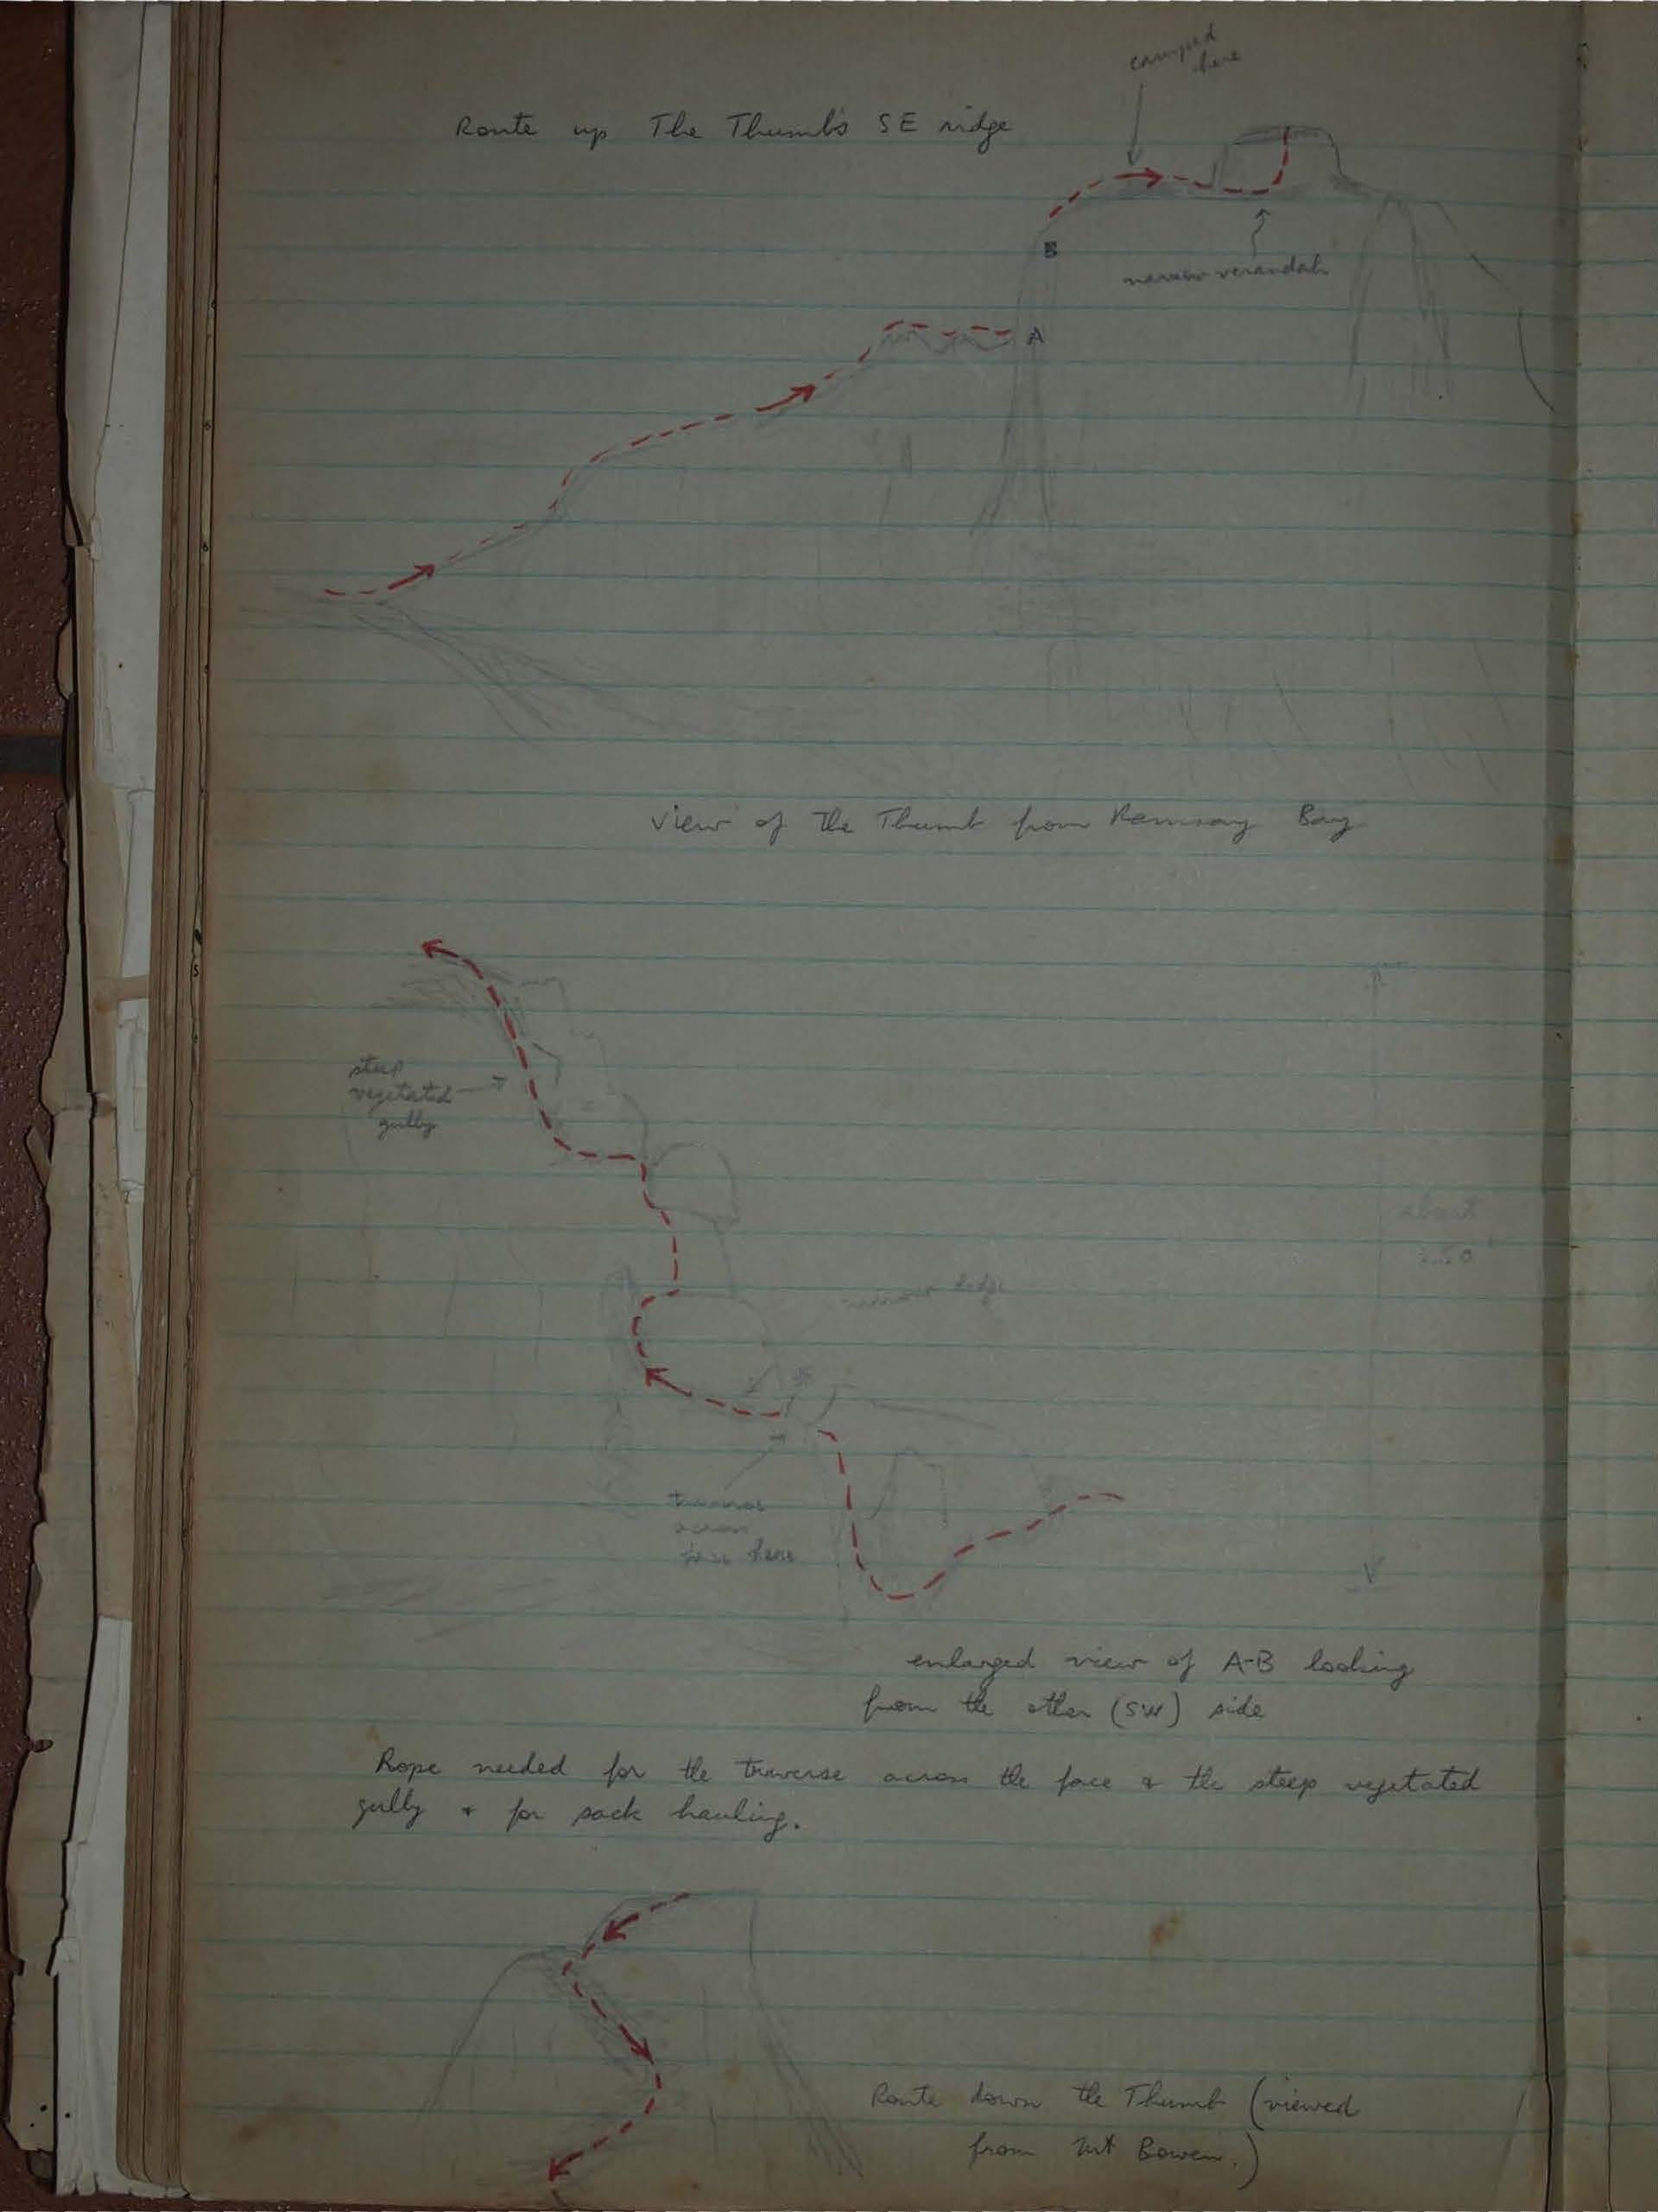 camped
here
Route up The Thumb's SE ridge
B
narrow verandah
A
View of the Thumb from Ramsay Bay
steep
vegetated
gully
about
narrow ledge
traverse
across
face here
enlarged view of A-B looking
from the other (SW) side
Rope needed for the traverse across the face & the steep vegetated
gully & for sack hauling.
Route down the Thumb (viewed
from Mt Bowen.)